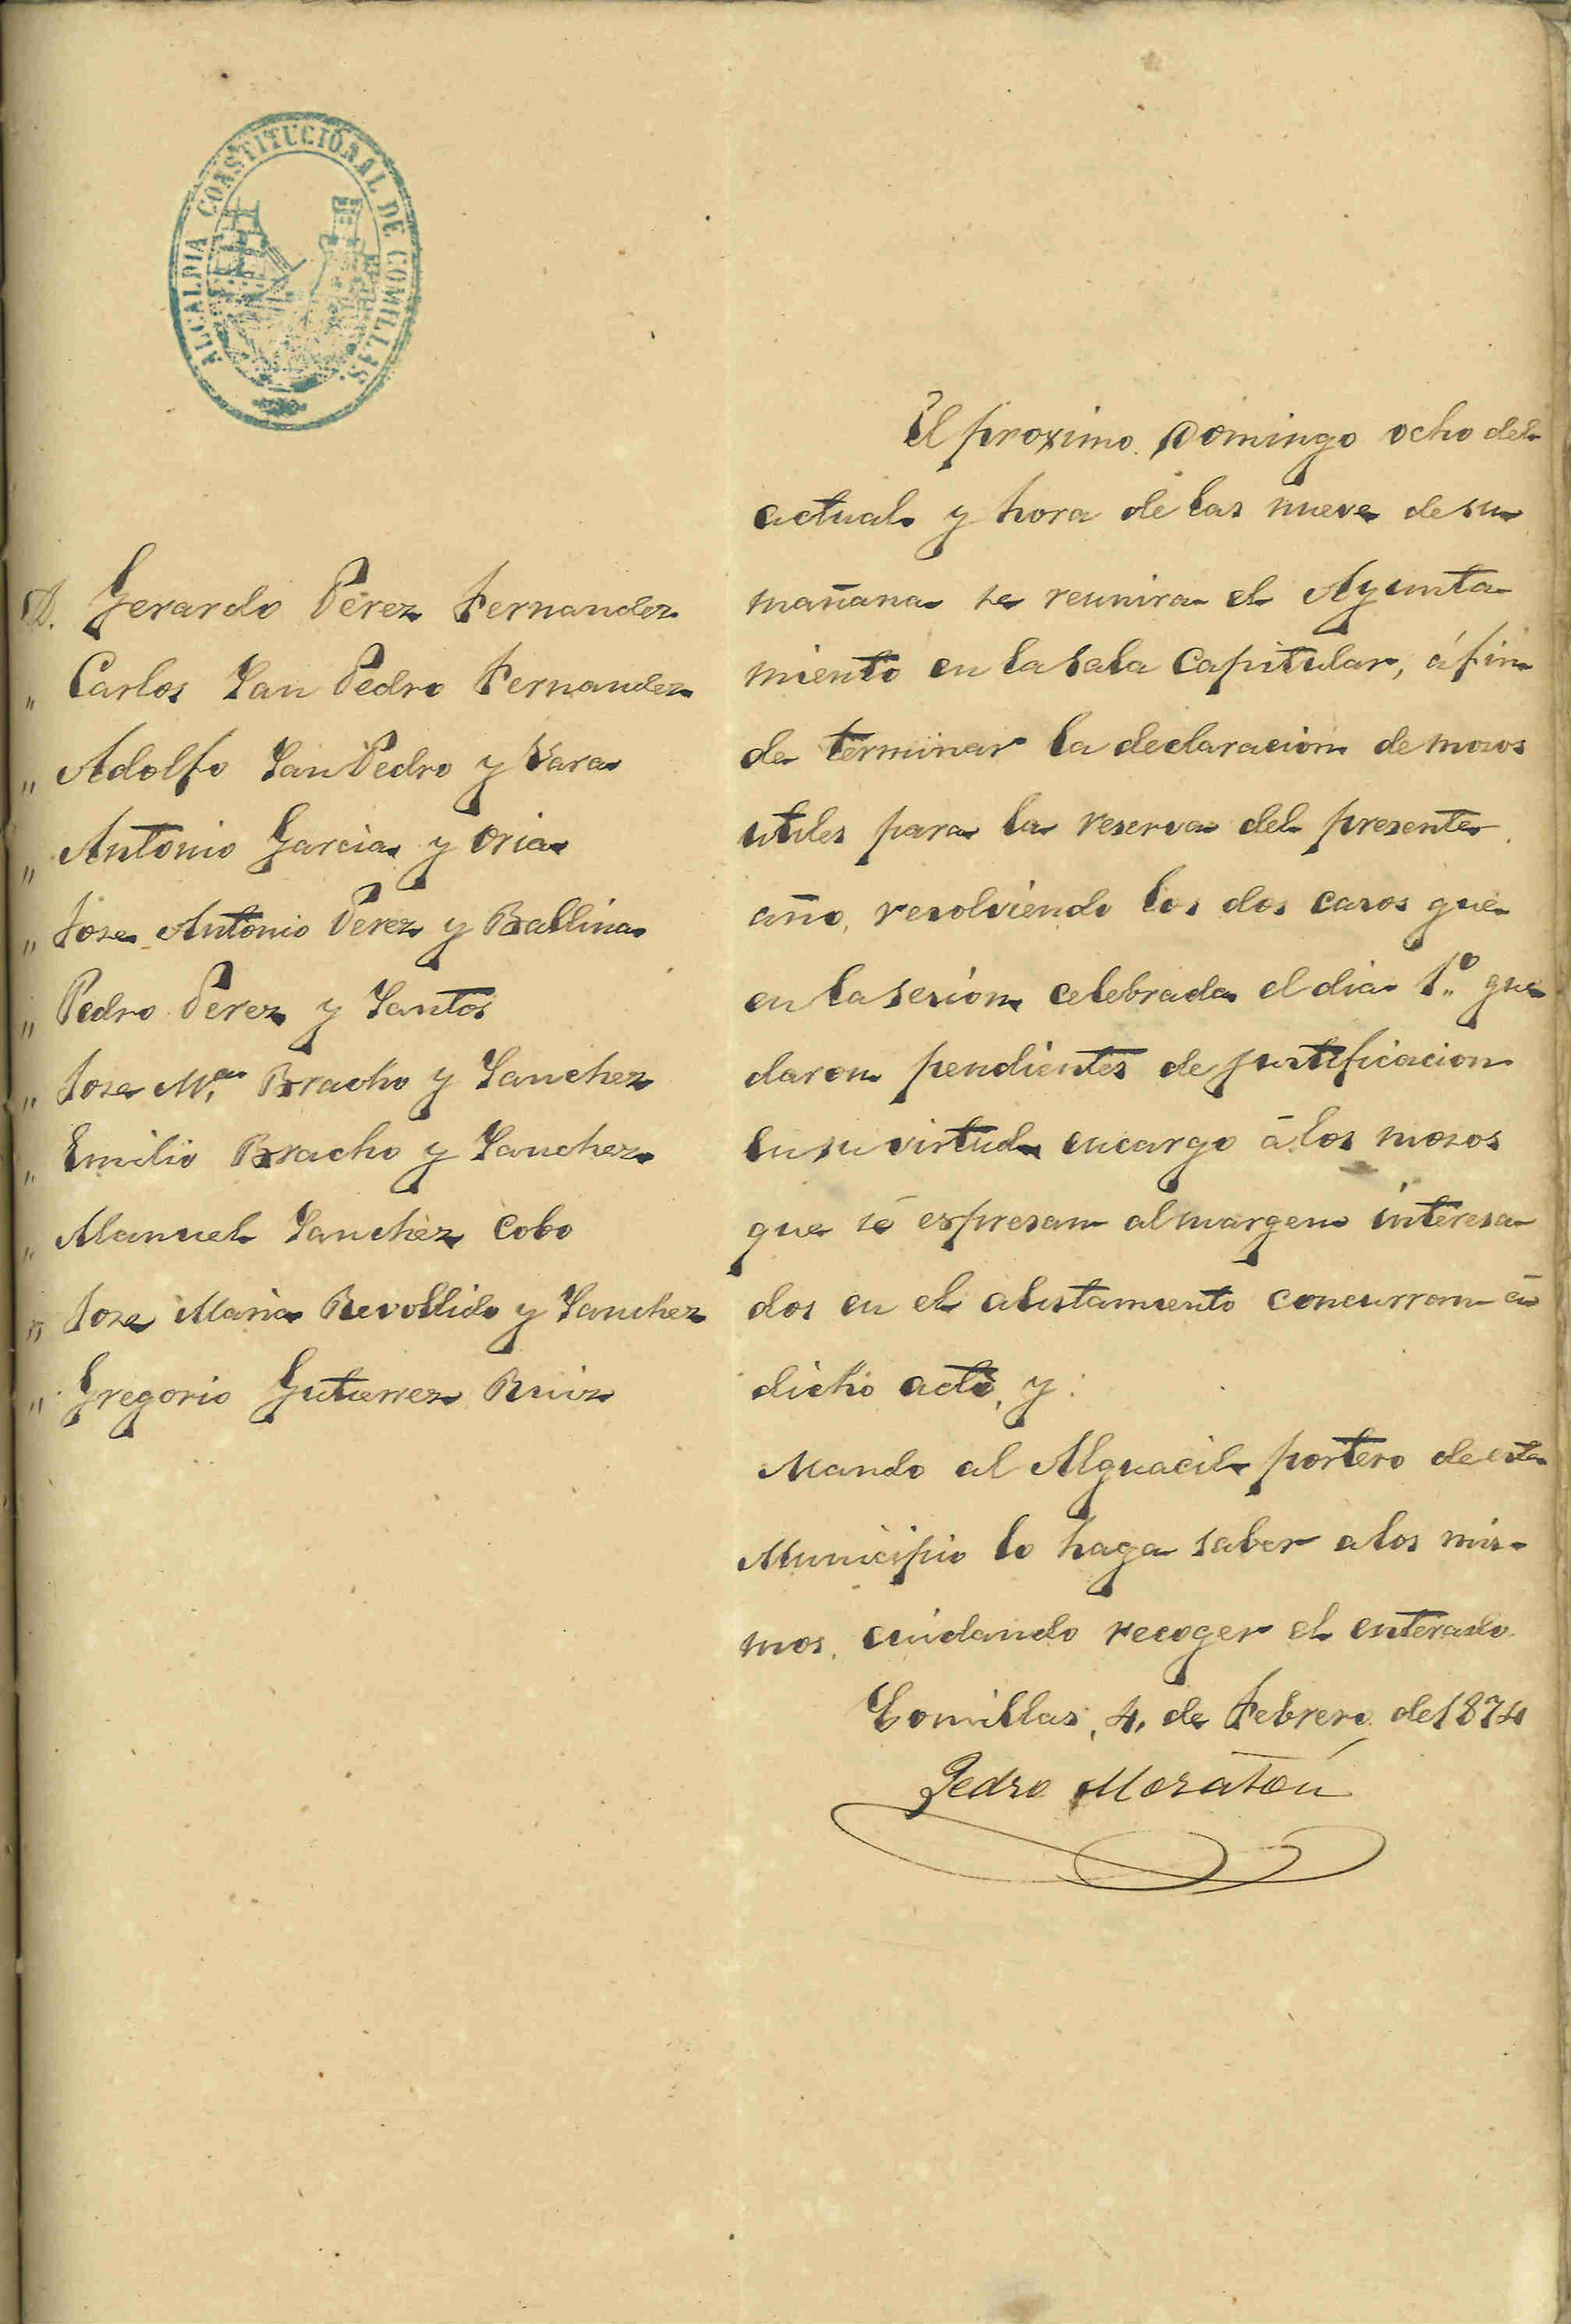 ALCALDIA CONSTITUCIONAL DE COMILLAS
D. Gerardo Perez Fernandez
" Carlos San Pedro Fernandez
" Adolfo San Pedro y Vara
" Antonio Garcia y Oria
" Jose Antonio Perez y Ballina
" Pedro Perez y Santos
" Jose Mª Bracho y Sanchez
" Emilio Bracho y Sanchez
" Manuel Sanchez Cobo
" Jose Maria Revollido y Sanchez
" Gregorio Gutierrez Ruiz
El proximo Domingo ocho del
actual y hora de las nueve de su
mañana se reunira el Ayunta
miento en la sala Capitular, á fin
de terminar la declaracion de mozos
utiles para la reserva del presente
año, resolviendo los dos casos que
en la sesion celebrada el dia 1º que
daron pendientes de justificacion
En su virtud encargo á los mozos
que se espresan al margen interesa
dos en el alistamiento concurran á
dicho acto, y
Mando al Alguacil portero de este
Municipio lo haga saber a los mis-
mos, cuidando recoger el enterado.
Comillas, 4, de Febrero de 1874
Pedro Moratón